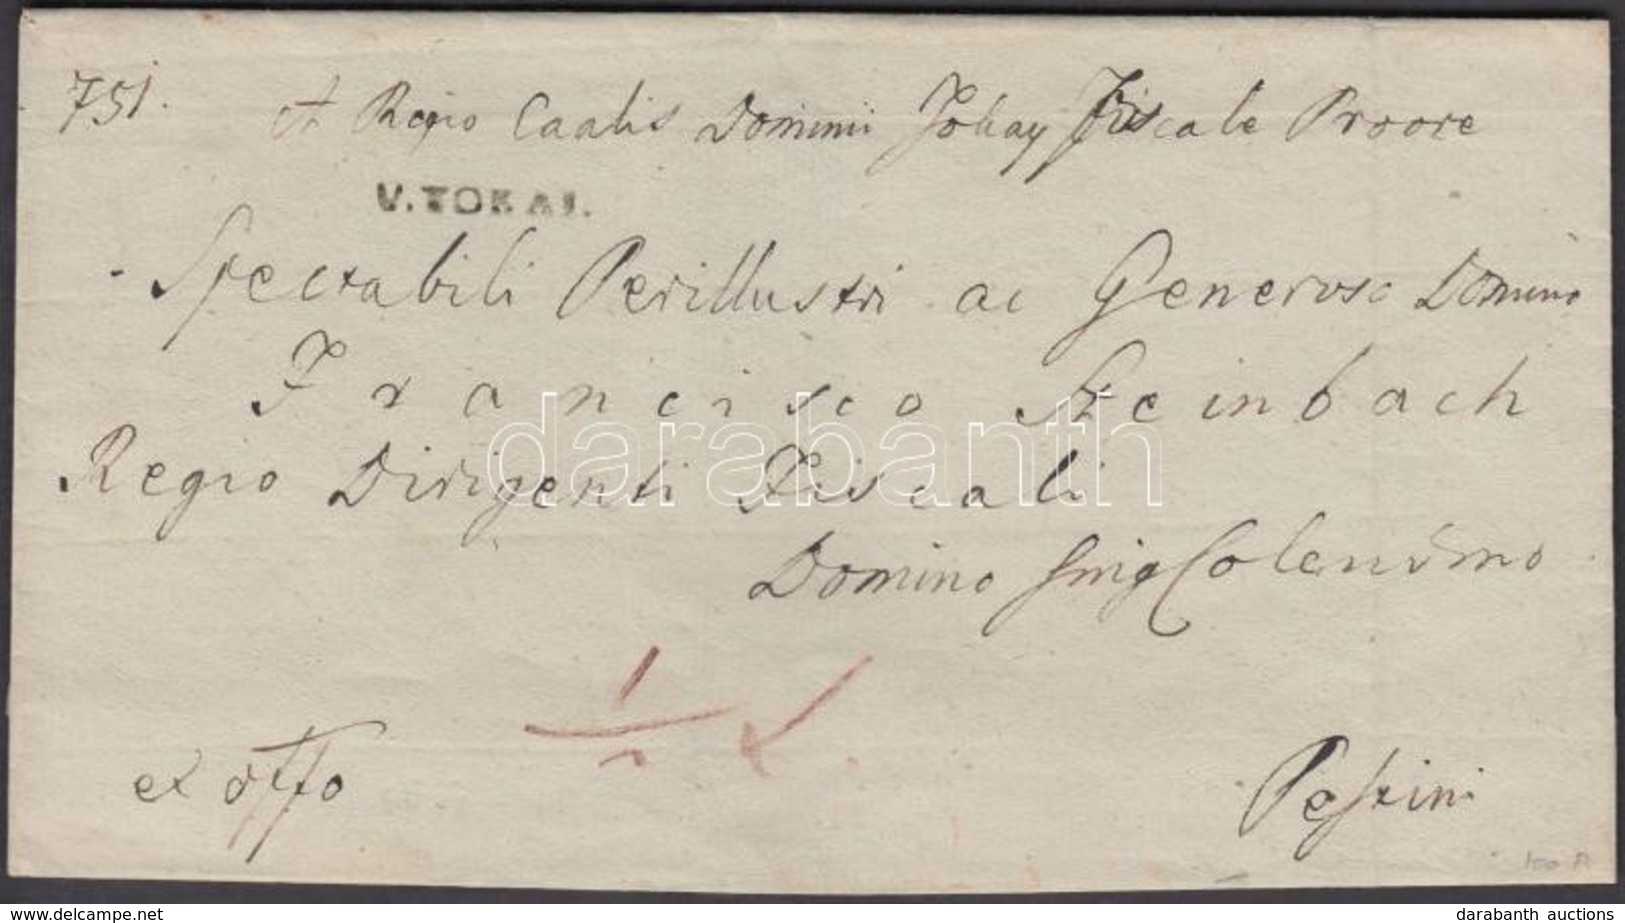 751. A Regio Caalis Dominii Tokay Fiscale Proore
V.TOKAI.
Spectabili Perillustri ac Generoso Domino
Francisco Steinbach
darabanth
Regio Dirigenti Fiscali
Domino Colendmo
1/2
ex offo
Pestini
100 P
www.delcampe.net
darabanth auctions